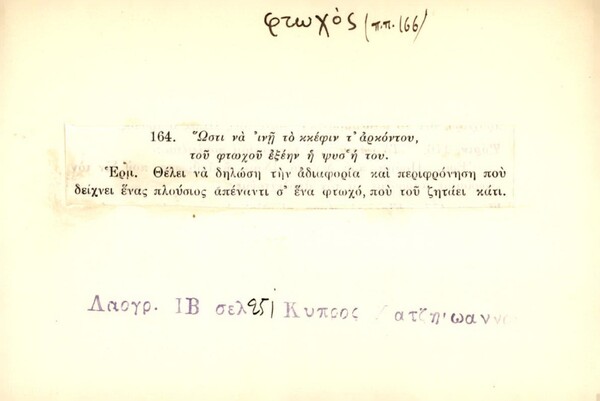 φτωχός (π.π. 166)
164. Ὥστι νὰ ᾿ινῇ τὸ κκέφιν τ᾿ ἀρκόντου,
τοῦ φτωχοῦ ἐξέην ἡ ψυσ̌ή του.
Ἑρμ. Θέλει νὰ δηλώση τὴν ἀδιαφορία καὶ περιφρόνηση ποὺ
δείχνει ἕνας πλούσιος ἀπέναντι σ᾿ ἕνα φτωχό, ποὺ τοῦ ζητάει κάτι.
Λαογρ. ΙΒ σελ 251 Κυπρος Χατζη᾿ωαννου